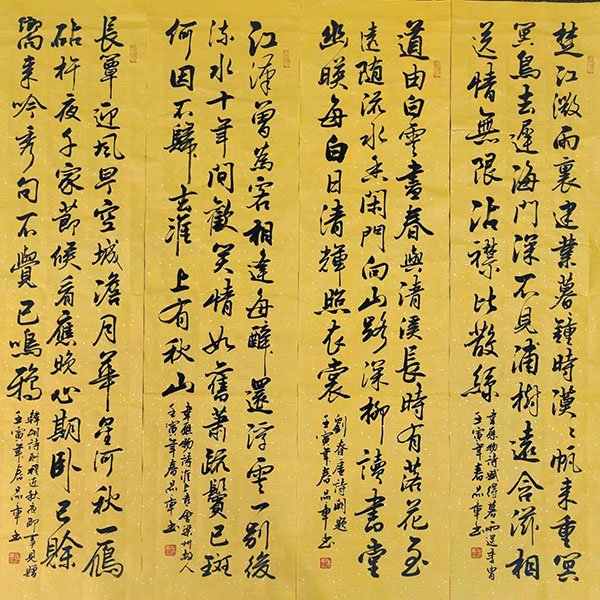 楚江微雨裏建業暮鐘時漠〻帆来重冥
冥鳥去遲海門深不見浦樹遠含滋相
送情無限沾襟比散絲
韋應物詩賦得暮雨送李胄
壬寅年春品章書
道由白雲盡春與清溪長時有落花至
遠隨流水香閑門向山路深柳讀書堂
幽暎每白日清輝照衣裳
劉眘虛詩闕題
壬寅年春品章書
江漢曾為客相逢每醉還浮雲一別後
流水十年間歡笑情如舊蕭疏鬢已斑
何因不歸去淮上有秋山
韋應物詩淮上喜會梁州故人
壬寅年春品章書
長簟迎風早空城澹月華星河秋一鴈
砧杵夜千家節候看應晚心期臥已賒
嚮来吟秀句不覺已鳴鴉
韓翃詩酬程近秋夜即事見贈
壬寅年春品章書